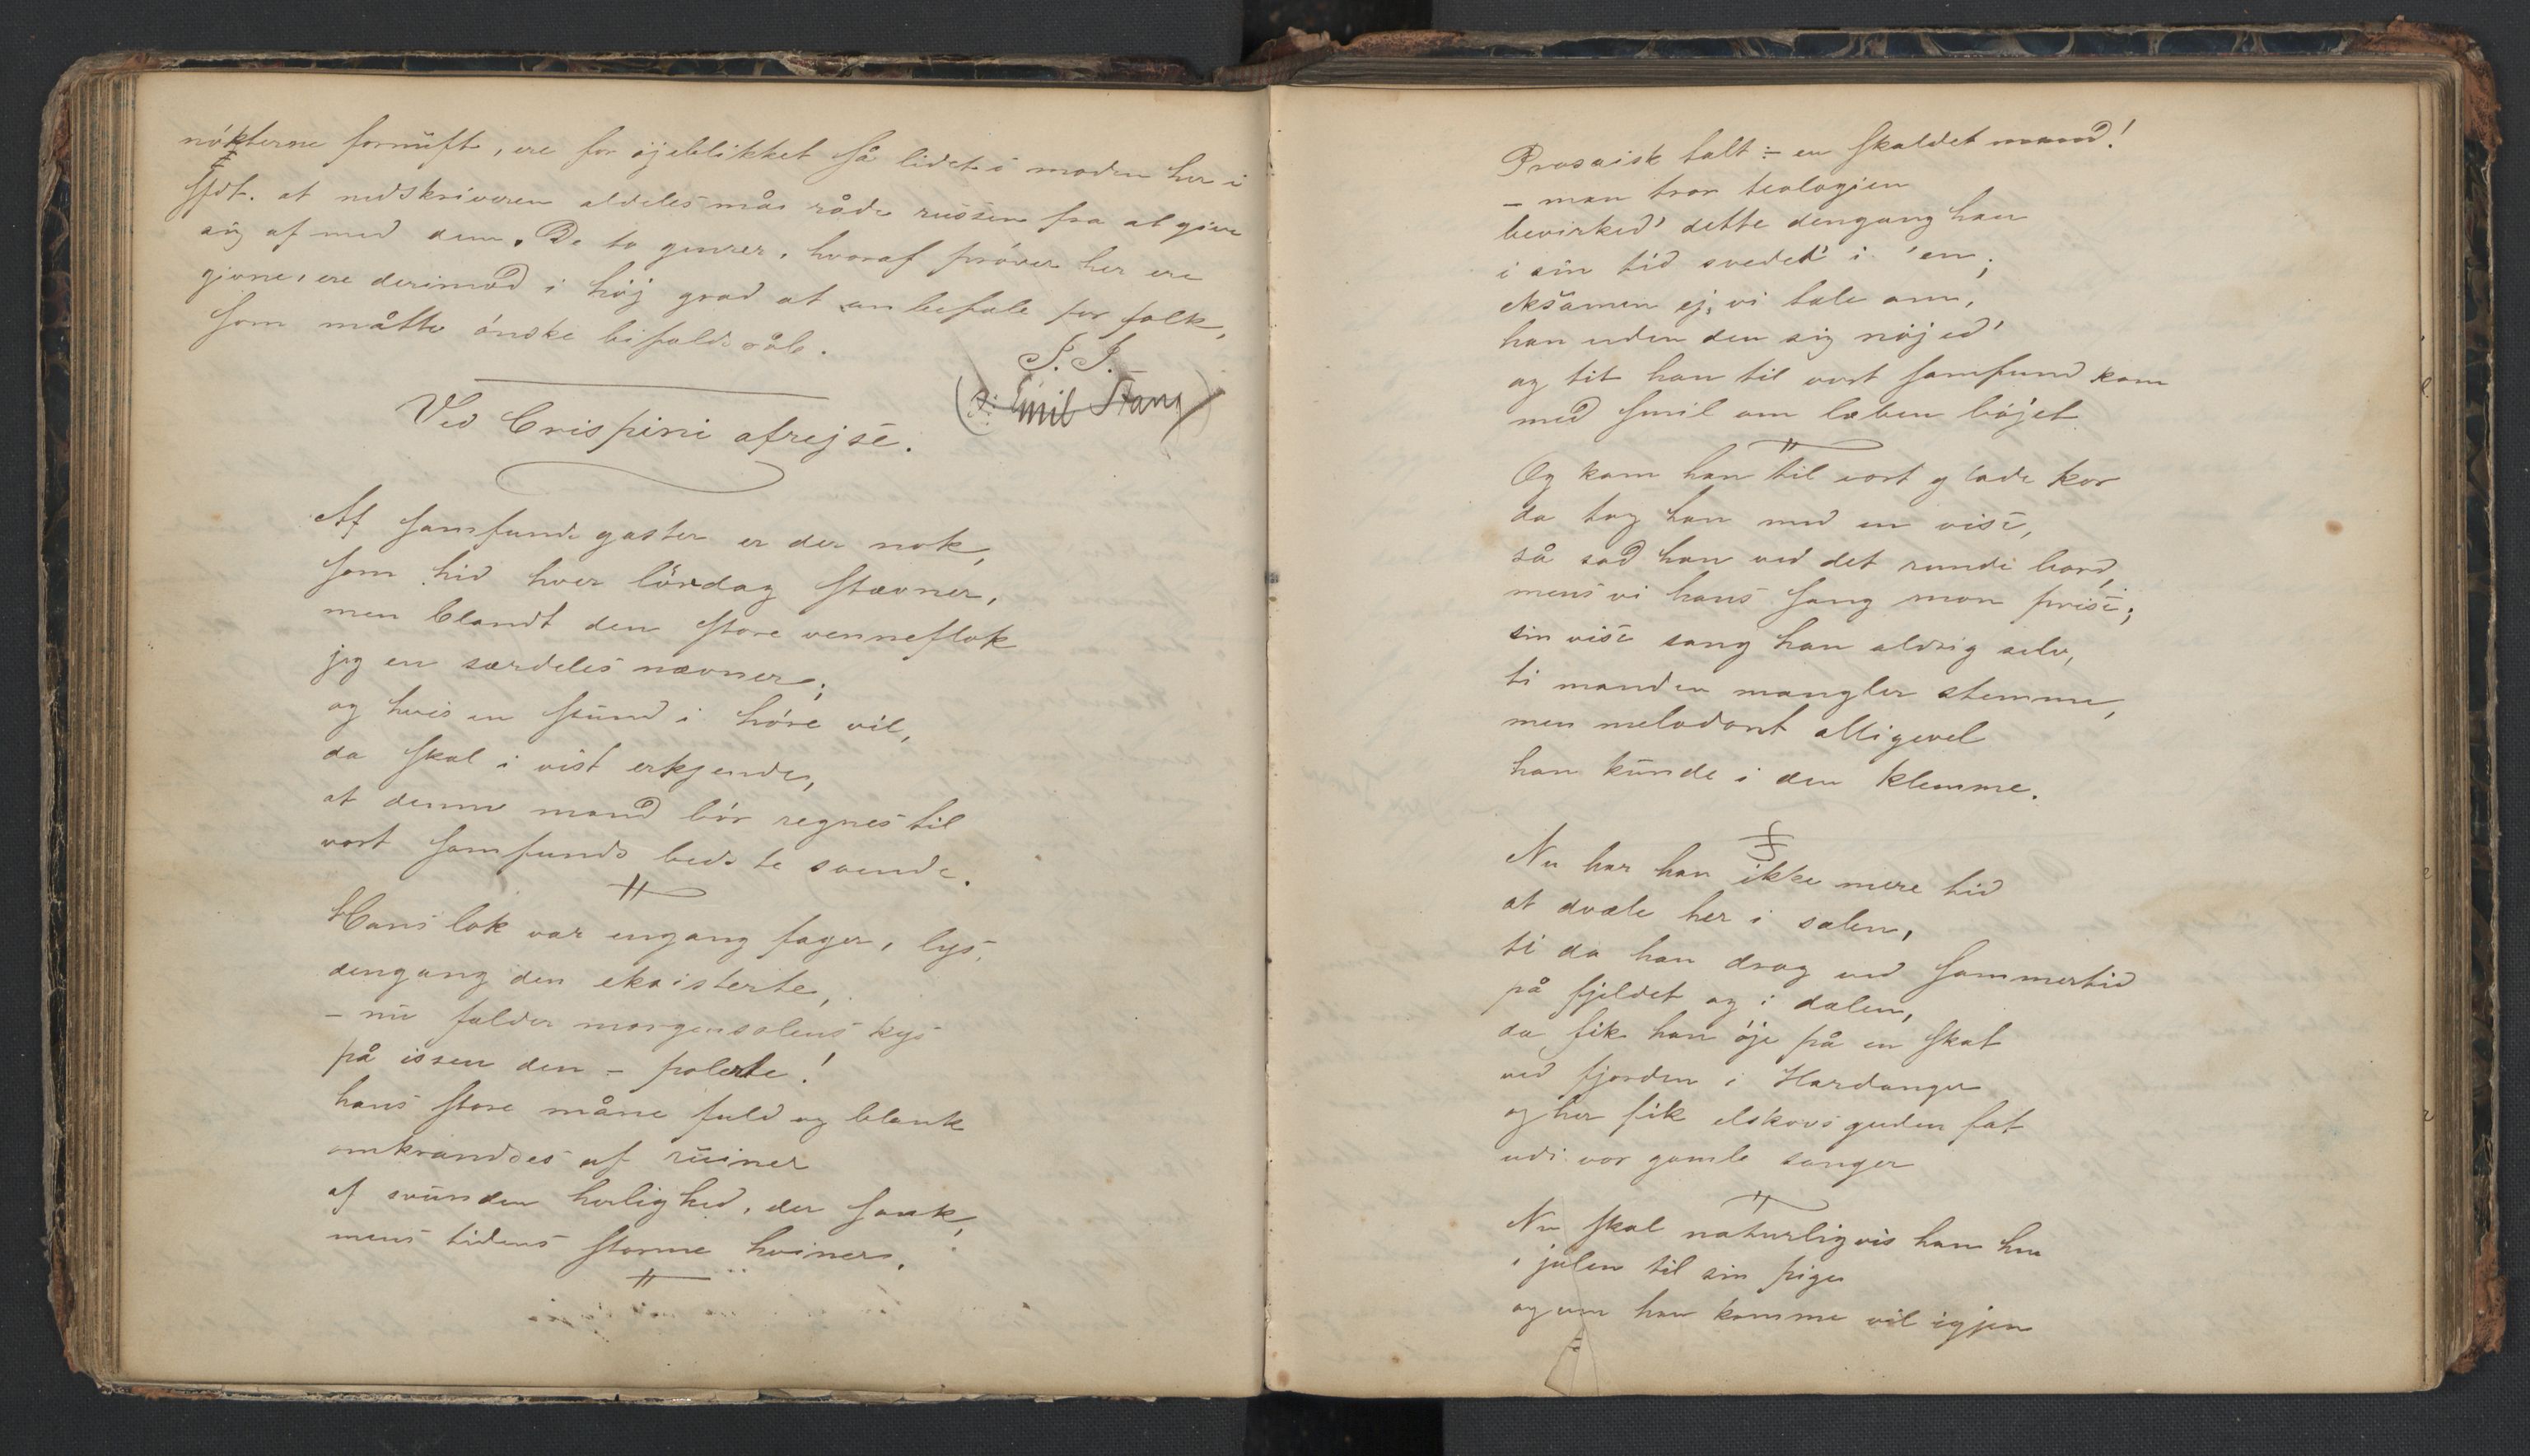 nökterne fornuft, ere for øjeblikket så lidet i moden her i
Sfdt. at nedskriveren aldeles må råde russen fra at give
sig af med dem. De to genrer, hvoraf prøver her ere
givne, ere derimod i høj grad at anbefale for folk,
som måtte ønske bifaldsråb.
S. J.
(ɔ: Emil Stang)
Ved Crispini afrejse.
Af samfundsgaster er der nok,
som hid hver lördag stævner,
men blandt den store venneflok
jeg en særdeles nævner;
og hvis en stund i høre vil,
da skal i vist erkjende,
at denne mand bör regnes til
vort samfunds bedste svende.
Hans lok var engang fager, lys,
dengang den eksisterte,
– nu falder morgensolens kys
på issen den – polerte!
hans store måne fuld og blank
omkrandses af ruiner
af svunden herlighed, der sank,
mens tidens storme hviner.
Prosaisk talt :– en skaldet mand!
– man tror teologien
bevirked' dette dengang han
i sin tid sveded' i 'en;
eksamen ej, vi tale om,
han uden den sig nøjed'
og tit han til vort samfund kom
med smil om læben bøjet
Og kom han til vort glade kor
da tog han med en vise,
så sad han ved det runde bord,
mens vi hans sang mon prise;
sin vise sang han aldrig selv,
ti manden mangler stemme,
men melodont alligevel
han kunde i den klemme.
Nu har han ikke mere tid
at dvæle her i salen,
ti da han drog ved sommertid
på fjeldet og i dalen,
da fik han øje på en skat
ved fjorden i Hardanger
og her fik elskovsguden fat
udi vor gamle sanger
Nu skal naturligvis han hen
i julen til sin pige
og om han komme vil igjen